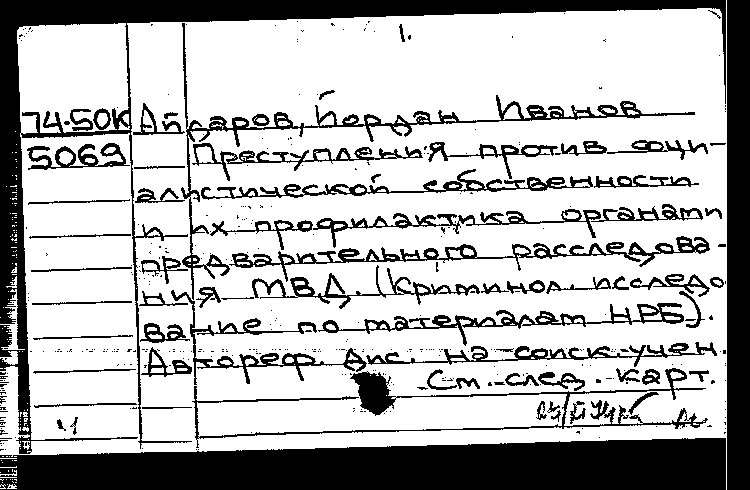 1.
74-50К Айдаров, Йордан Иванов
5069 Преступления против соци-
алистической собственности
и их профилактика органами
предварительного расследова-
ния МВД. (Криминол. исследо
вание по материалам НРБ).
Автореф. дис. на соиск. учен.
См. след. карт.